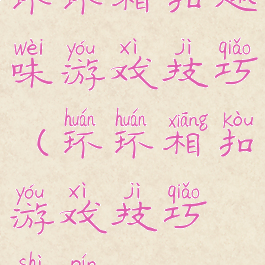 环环相扣趣
wèi yóu xì jì qiǎo
味游戏技巧
huán huán xiāng kòu
（环环相扣
yóu xì jì qiǎo
游戏技巧
shì pín